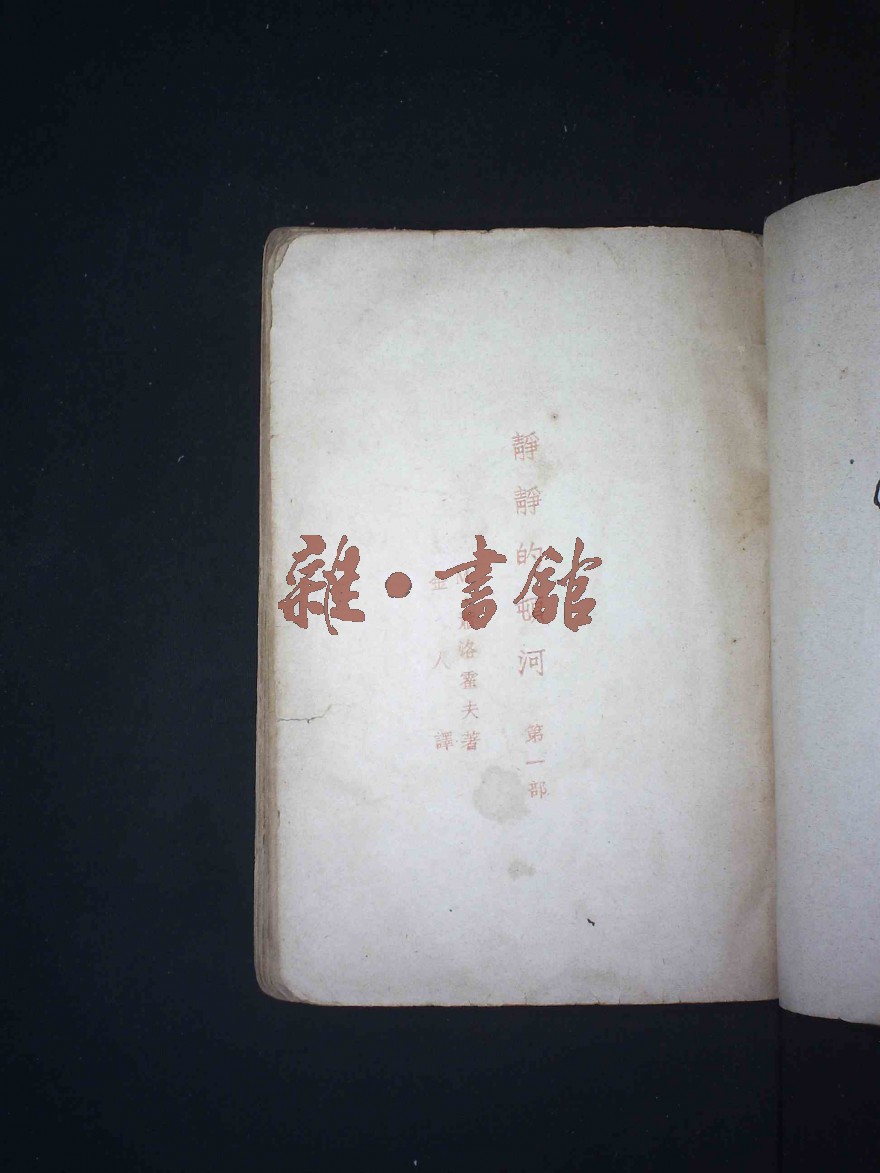 靜靜的屯河 第一部
洛霍夫著
金人譯
雜·書館